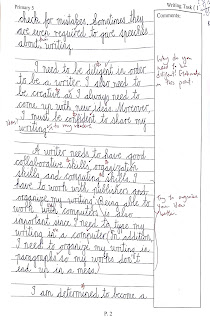 Primary 5
Writing Task (
Comments:
check for mistakes. Sometimes they
are even required to give speeches
about writing.
I need to be diligent in order
to be a writer. I also need to
be creative as I always need to
come up with new ideas. Moreover,
I must be confident to share my
writing to my readers.
Why do you
need to be
diligent?
this point.
A writer needs to have good
collaborative skills, organization
skills and computing skills. I
have to work with publishers and
organize my writing. Being able to
work with computers is also
important since I need to type my
writing in a computer. In addition,
I need to organize my writing in
paragraphs so my works don't
end up in a mess.
Try to organise
your ideas
I am determined to become a
P. 2